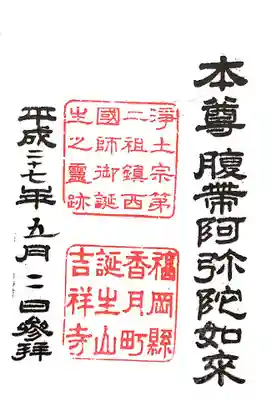 本尊 腹帯阿弥陀如来
淨土宗第
二祖鎮西
國師御誕
生之靈跡
福岡縣
香月町
誕生山
吉祥寺
平成二十七年五月二日參拜